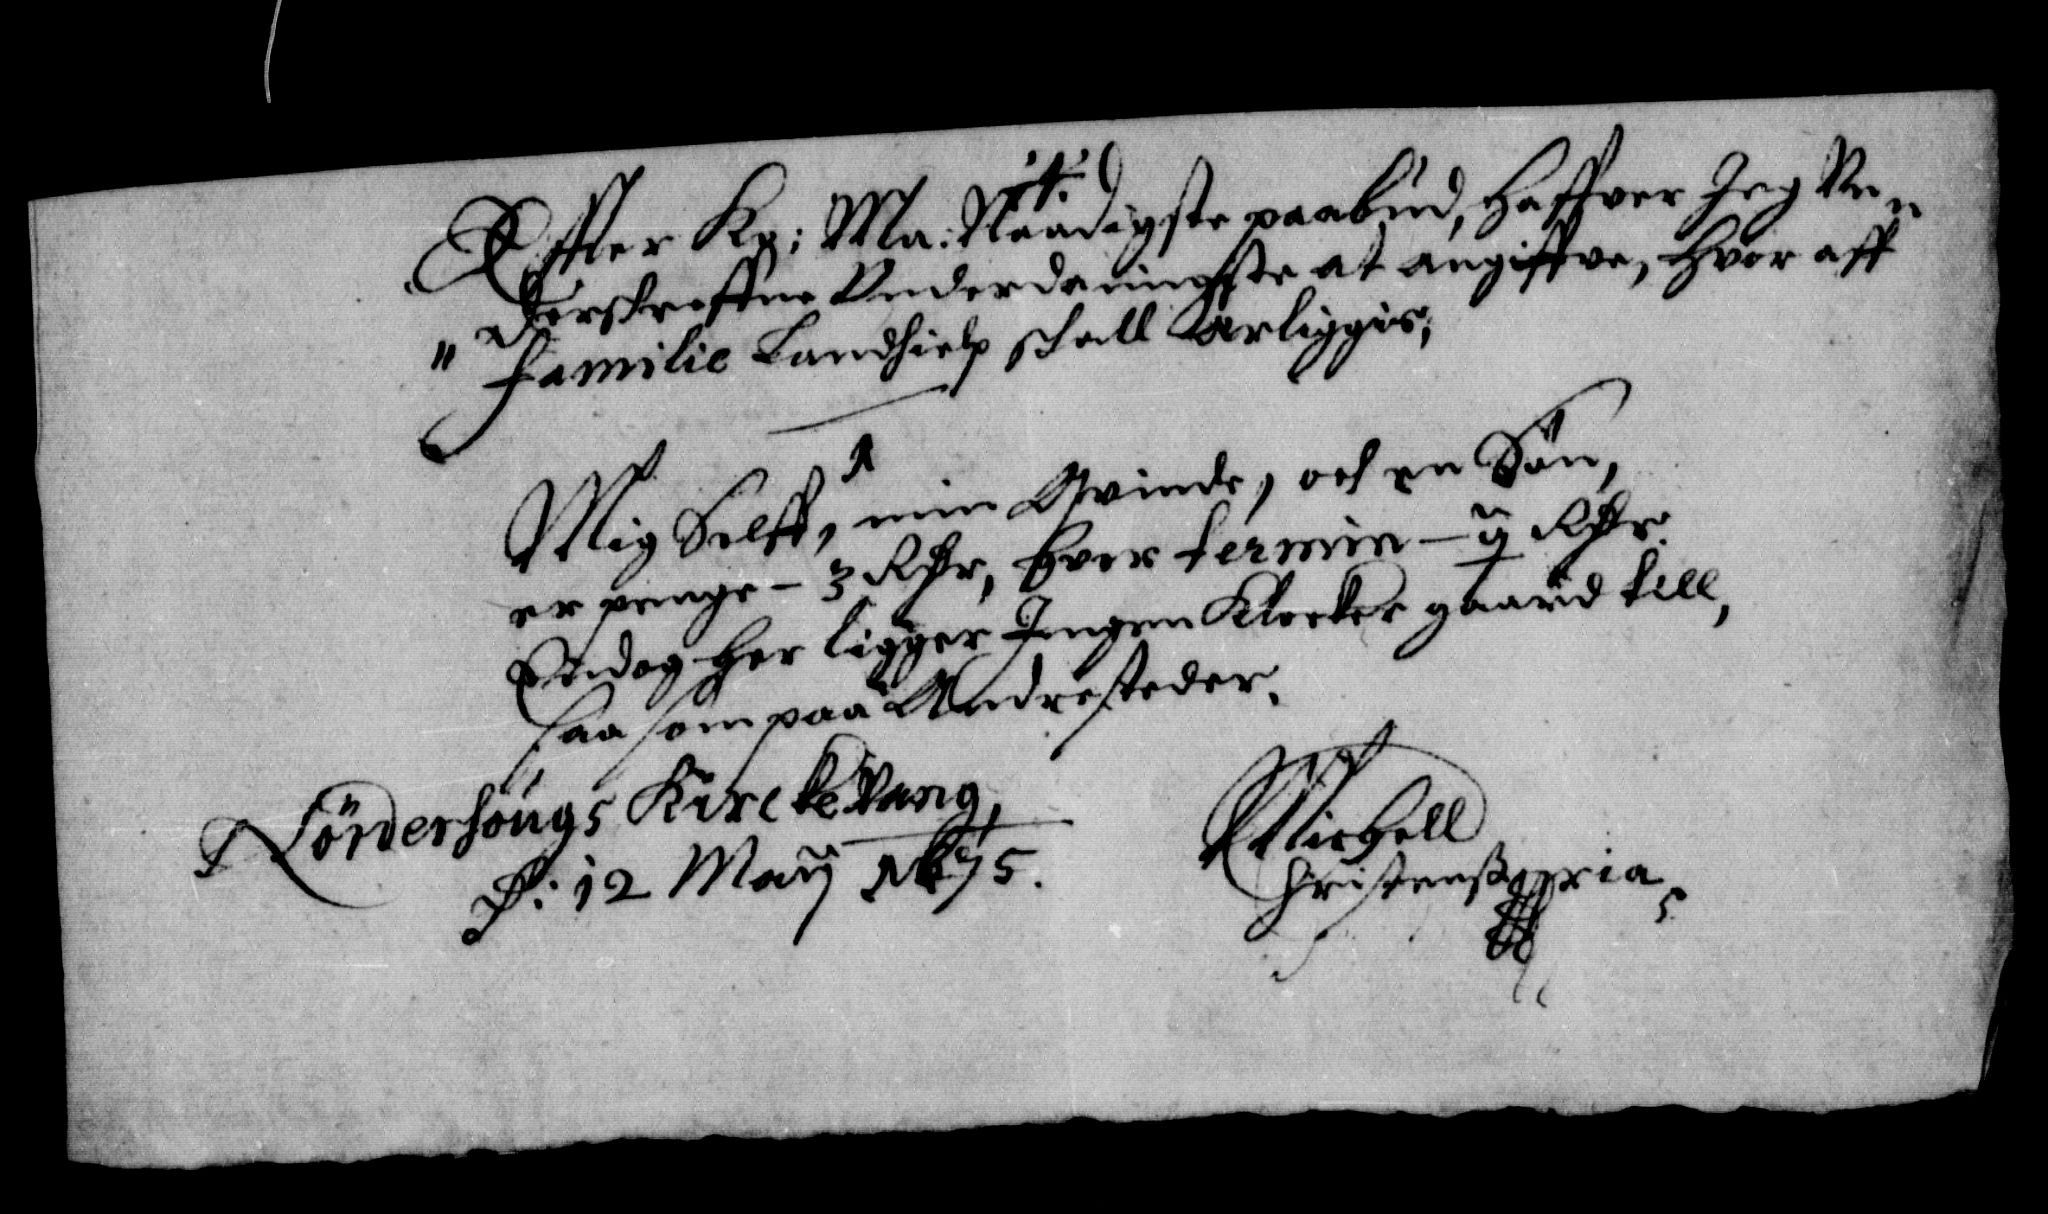 Effter Kg: Ma: Naadigste paabud, haffver Jeg Vn„
„derskreffne Vnderdanigste at angiffve, hvor aff
Familie Landhielp schall Erliggis;
Mig Selff, min Qvinde, och en Sön,
er penge - 3 Rdr, hver termin - ij Rdr.
Endog her ligger Ingen Klocker gaard till,
saa som paa Andresteder.
Nörderhougs Kirckevang,
D: 12 Maij 1675.
Michell
Christenß